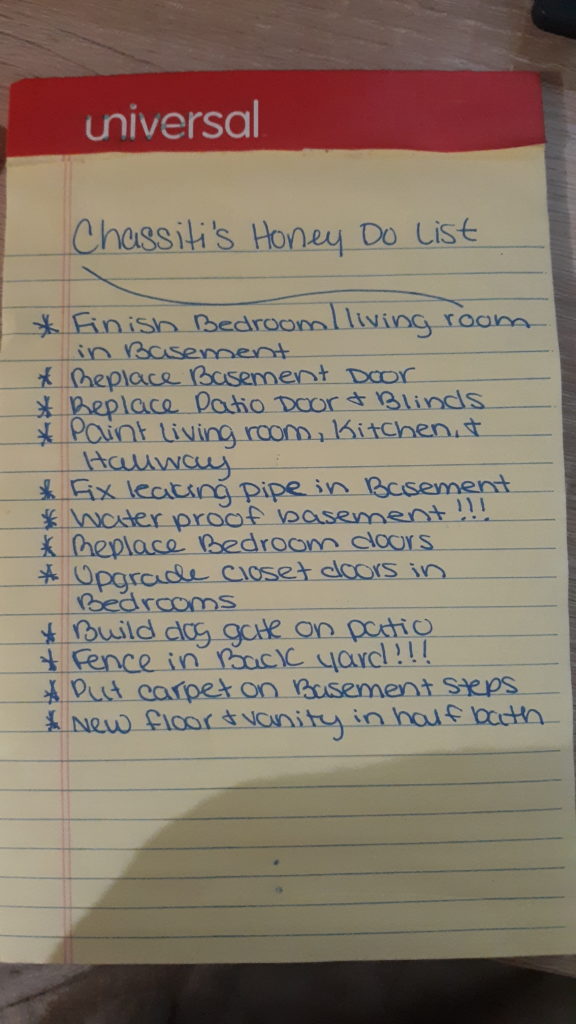 universal
Chassiti's Honey Do List
* Finish Bedroom/living room
in Basement
* Replace Basement Door
* Replace Patio Door & Blinds
* Paint living room, Kitchen, &
Hallway
* Fix leaking pipe in Basement
* Water proof basement!!!
* Replace Bedroom doors
* Upgrade closet doors in
Bedrooms
* Build dog gate on patio
* Fence in Back yard!!!
* Put carpet on Basement steps
* New floor & vanity in half bath